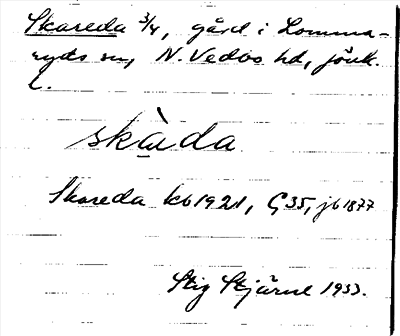 Skareda 3/4, gård i Lomma-
ryds sn, N. Vedbo hd, Jönk.
l.
skàda
Skareda kb 1921, G35, jb 1877
Stig Stjärne 1933.